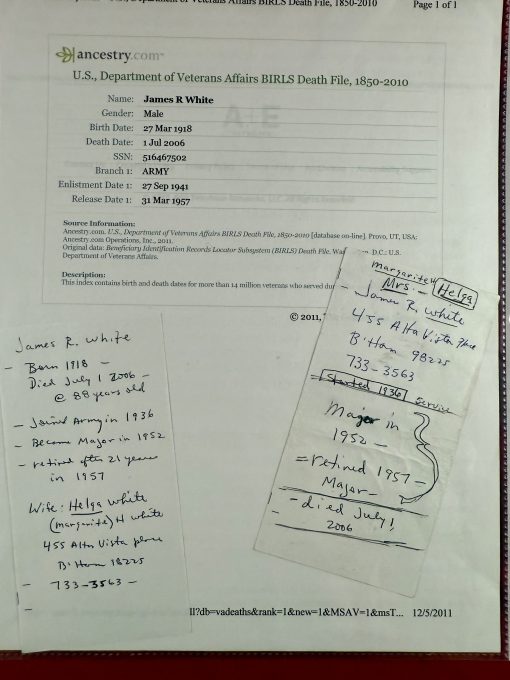 Department of Veterans Affairs BIRLS Death File, 1850-2010
Page 1 of 1
ancestry.com
U.S., Department of Veterans Affairs BIRLS Death File, 1850-2010
Name: James R White
Gender: Male
Birth Date: 27 Mar 1918
Death Date: 1 Jul 2006
SSN: 516467502
Branch 1: ARMY
Enlistment Date 1: 27 Sep 1941
Release Date 1: 31 Mar 1957
Source Information:
Ancestry.com. U.S., Department of Veterans Affairs BIRLS Death File, 1850-2010 [database on-line]. Provo, UT, USA:
Ancestry.com Operations, Inc., 2011.
Original data: Beneficiary Identification Records Locator Subsystem (BIRLS) Death File. D.C.: U.S.
Department of Veterans Affairs.
Description:
This index contains birth and death dates for more than 14 million veterans who served
© 2011,
James R. White
- Born 1918 -
Died July 1 2006 -
@ 88 years old
- Joined Army in 1936
- Became Major in 1952
- retired after 21 years
in 1957
Wife: Helga White
(Margarite) H White
455 Alta Vista place
B'Ham 98225
- 733-3563 -
-
Margarite H
Mrs. - Helga
- James R. White
455 Alta Vista place
B'Ham 98225
733-3563
Started 1936 service
Major in
1952 -
= retired 1957 -
Major -
- died July 1
2006
ll?db=vadeaths&rank=1&new=1&MSAV=1&msT... 12/5/2011